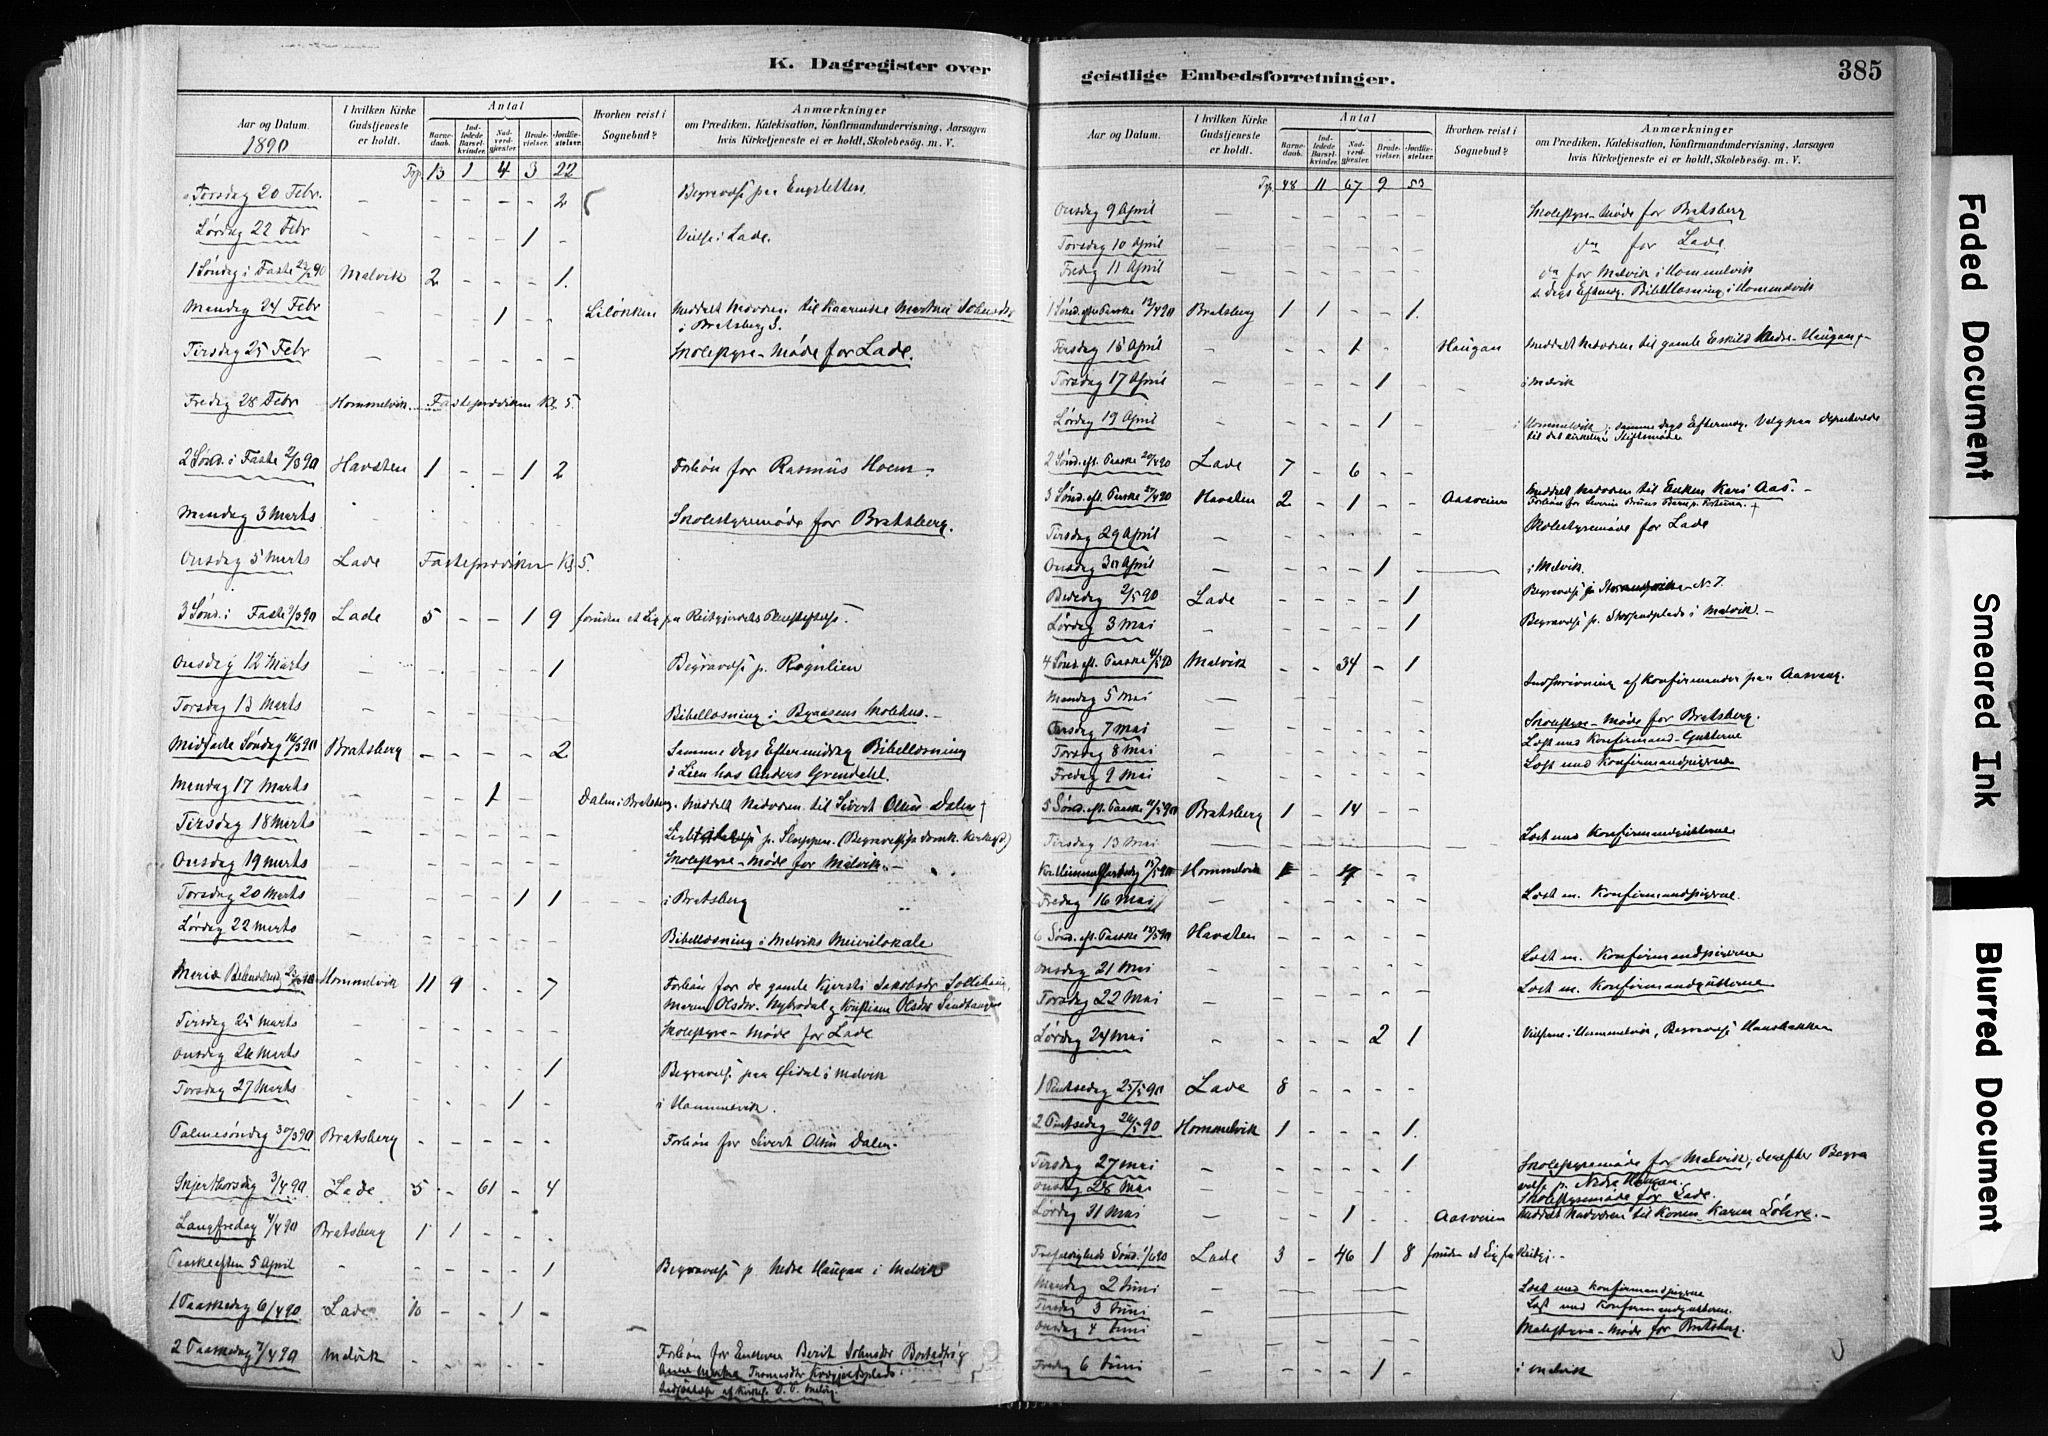 K. Dagregister over
Aar og Datum.
1890
I hvilken Kirke Gudstjeneste er holdt.
Antal
Barnedaab.
Indledede Barselkvinder.
Nadverdgjester.
Brudevielser.
Jordfæstelser.
Hvorhen reist i Sognebud?
Anmærkninger
om Prædiken, Katekisation, Konfirmandundervisning, Aarsagen hvis Kirketjeneste ei er holdt, Skolebesøg m. V.
13 1 4 3 22
Torsdag 20 Febr. - - - - - 2 Begravelse paa Engsletten.
Lørdag 22 Febr - - - - 1 - Vielse i Lade.
1 Søndag i Faste 23/2 90 Malvik 2 - - - 1.
Mandag 24 Febr - - - 1 - - Meddelt Nadveren til
i Bratsberg S.
Tirsdag 25 Febr - - - - - - Skolestyre-Møde for Lade.
Fredag 28 Febr Hommelvik. Fasteprædiken Kl. 5.
2 Sønd. i Faste 2/3 90 Havsten 1 - - 1 2 Forbøn for Rasmus Hoem-
Mandag 3 Marts - - - - - - Skolestyremøde for Bratsberg.
Onsdag 5 Marts Lade Fasteprædiken Kl 5.
3 Sønd. i Faste 9/3 90 Lade 5 - - 1 9 foruden et Lig paa
Onsdag 12 Marts - - - - - 1 Begravelse p. Rognlien
Torsdag 13 Marts - - - - - - Bibellæsning i Byaasens Skolehus.-
Midfaste Søndag 16/3 90 Bratsberg - - - - 2 Samme Dags Eftermiddag Bibellæsning
i Lien hos Anders Grendahl.
Mandag 17 Marts - - - 1 - - Dalen i Bratsberg. Meddelt Nadveren til Sivert Olsen Dalen
Tirsdag 18 Marts - - - - - - p. Sluppen.
Onsdag 19 Marts - - - - - - Skolestyre-Møde for Malvik.-
Torsdag 20 Marts - - - - 1 1 i Bratsberg
Lørdag 22 Marts - - - - - - Bibellæsning i Malviks Meierilokale
Mariæ 25/3 90 Hommelvik 11 9 - - 7 Forbøn for de gamle Kjersti Jakobsdr
Maren Olsdr. og Kristiane Olsdr
Tirsdag 25 Marts - - - - - - Skolestyre-Møde for Lade
Onsdag 26 Marts - - - - - 1 Begravelse paa i Malvik
Torsdag 27 Marts - - - - 1 - i Hommelvik.
Palmesøndag 30/3 90 Bratsberg - - - - - Forbøn for Sivert Olsen Dalen-
Skjærthorsdag 3/4 90 Lade 5 - 61 - 4
Langfredag 4/4 90 Bratsberg 1 1 - - -
Paaskeaften 5 April - - - - - 1 Begravelse p. Nedre Haugan i Malvik
1 Paaskedag 6/4 90 Lade 10 - - 1 -
2 Paaskedag 7/4 90 Malvik - - - - - Forbøn for Enkerne Berit Johnsdr
geistlige Embedsforretninger.
385
Aar og Datum.
I hvilken Kirke Gudstjeneste er holdt.
Antal
Barnedaab.
Indledede Barselkvinder.
Nadverdgjester.
Brudevielser.
Jordfæstelser.
Hvorhen reist i Sognebud?
Anmærkninger
om Prædiken, Katekisation, Konfirmandundervisning, Aarsagen hvis Kirketjeneste ei er holdt, Skolebesøg m. V.
48 11 67 9 53
Onsdag 9 April - - - - - - Skolestyre-Møde for Bratsberg
Torsdag 10 April - - - - - - do for Lade
Fredag 11 April - - - - - - do for Malvik i Hommelvik
s. Dags Efterm. Bibellæsning i Hommelvik
1 Sønd. efter Paaske 13/4 90 Bratsberg 1 1 - - 1.
Tirsdag 15 April - - - 1 - - Haugan Meddelt Nadveren til gamle Eskild Nedre-Haugan-
Torsdag 17 April - - - - 1 - - i Malvik
Lørdag 19 April - - - - 1 - i Hommelvik; samme Dags Efterm. Valg paa
til det kirkelige Stiftsmøde
2 Sønd. eft. Paaske 20/4 90 Lade 7 - 6 - -
3 Sønd. eft. Paaske 27/4 90 Havsten 2 - 1 - - Aasveien Meddelt Nadveren til Enken Kari Aas.-
Tirsdag 29 April - - - - - - Skolestyremøde for Lade
Onsdag 30 April - - - - 1 - i Malvik.
Bededag 2/5 90 Lade - - - - 1
Lørdag 3 Mai - - - - - 1 Begravelse p. i Malvik-
4 Sønd. eft. Paaske 4/5 90 Malvik - - 34 - 1
Mandag 5 Mai - - - - - - Indskrivning af Konfirmander paa Aasvang.
Onsdag 7 Mai - - - - - - Skolestyre-Møde for Bratsberg.
Torsdag 8 Mai - - - - - - Læst med Konfirmand-Gutterne
Fredag 9 Mai - - - - - - Læst med Konfirmandpigerne
5 Sønd. eft. Paaske 11/5 90 Bratsberg 1 - 14 - -
Tirsdag 13 Mai - - - - - - Læst med Konfirmandgutterne
Kr. Himmelfartsdag 15/5 90 Hommelvik - - - -
Fredag 16 Mai - - - - - - Læst m. Konfirmandpigerne.
6 Sønd. eft. Paaske 18/5 90 Havsten - - - - -
Onsdag 21 Mai - - - - - - Læst m. Konfirmandpigerne
Torsdag 22 Mai - - - - - - Læst m. Konfirmandgutterne
Lørdag 24 Mai - - - - 2 1 Vielserne i Hommelvik, Begravelse
1 Pintsedag 25/5 90 Lade 8 - - - -
2 Pintsedag 26/5 90 Hommelvik 1 - - - 1.
Tirsdag 27 Mai - - - - - 1 Skolestyremøde for Malvik, derefter Begra
velse p. Nedre Haugan.
Onsdag 28 Mai - - - - - - Skolestyremøde for Lade.
Lørdag 31 Mai - - - 1 - - Aasveien Meddelt Nadveren til Konen Karen Løhre.-
Trefoldigheds Sønd. 1/6 90 Lade 3 - 46 1 8 foruden et Lig fra
Mandag 2 Juni - Læst med Konfirmandpigerne
Tirsdag 3 Juni - Læst med Konfirmandgutterne.
Onsdag 4 Juni - - - - - - Skolestyre-Møde for Bratsberg.
Fredag 6 Juni - - - - 1 - i Malvik
Faded Document
Smeared Ink
Blurred Document